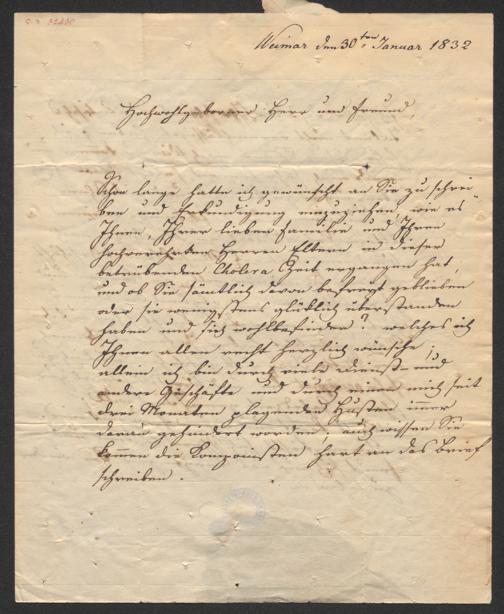 Weimar den 30ten Januar 1832
Hochwohlgeborner Herr und Freund,
Schon lange hatte ich gewünscht an Sie zu schrei-
ben und Erkundigung einzuziehen, wie es
Ihnen, Ihrer lieben Familie und Ihren
hochverehrten Herren Eltern in dieser
betrübenden Cholera Zeit ergangen hat,
und ob Sie sämtlich davon befreyt geblieben
oder sie wenigstens glücklich überstanden
haben und sich wohlbefinden? welches ich
Ihnen allen recht herzlich wünsche;
allein ich bin durch viele Dienst- und
andere Geschäfte und durch einen mich seit
drei Monaten plagenden Husten imer
daran gehindert worden; auch wissen Sie
komen die Komponisten hart an das Brief
schreiben.